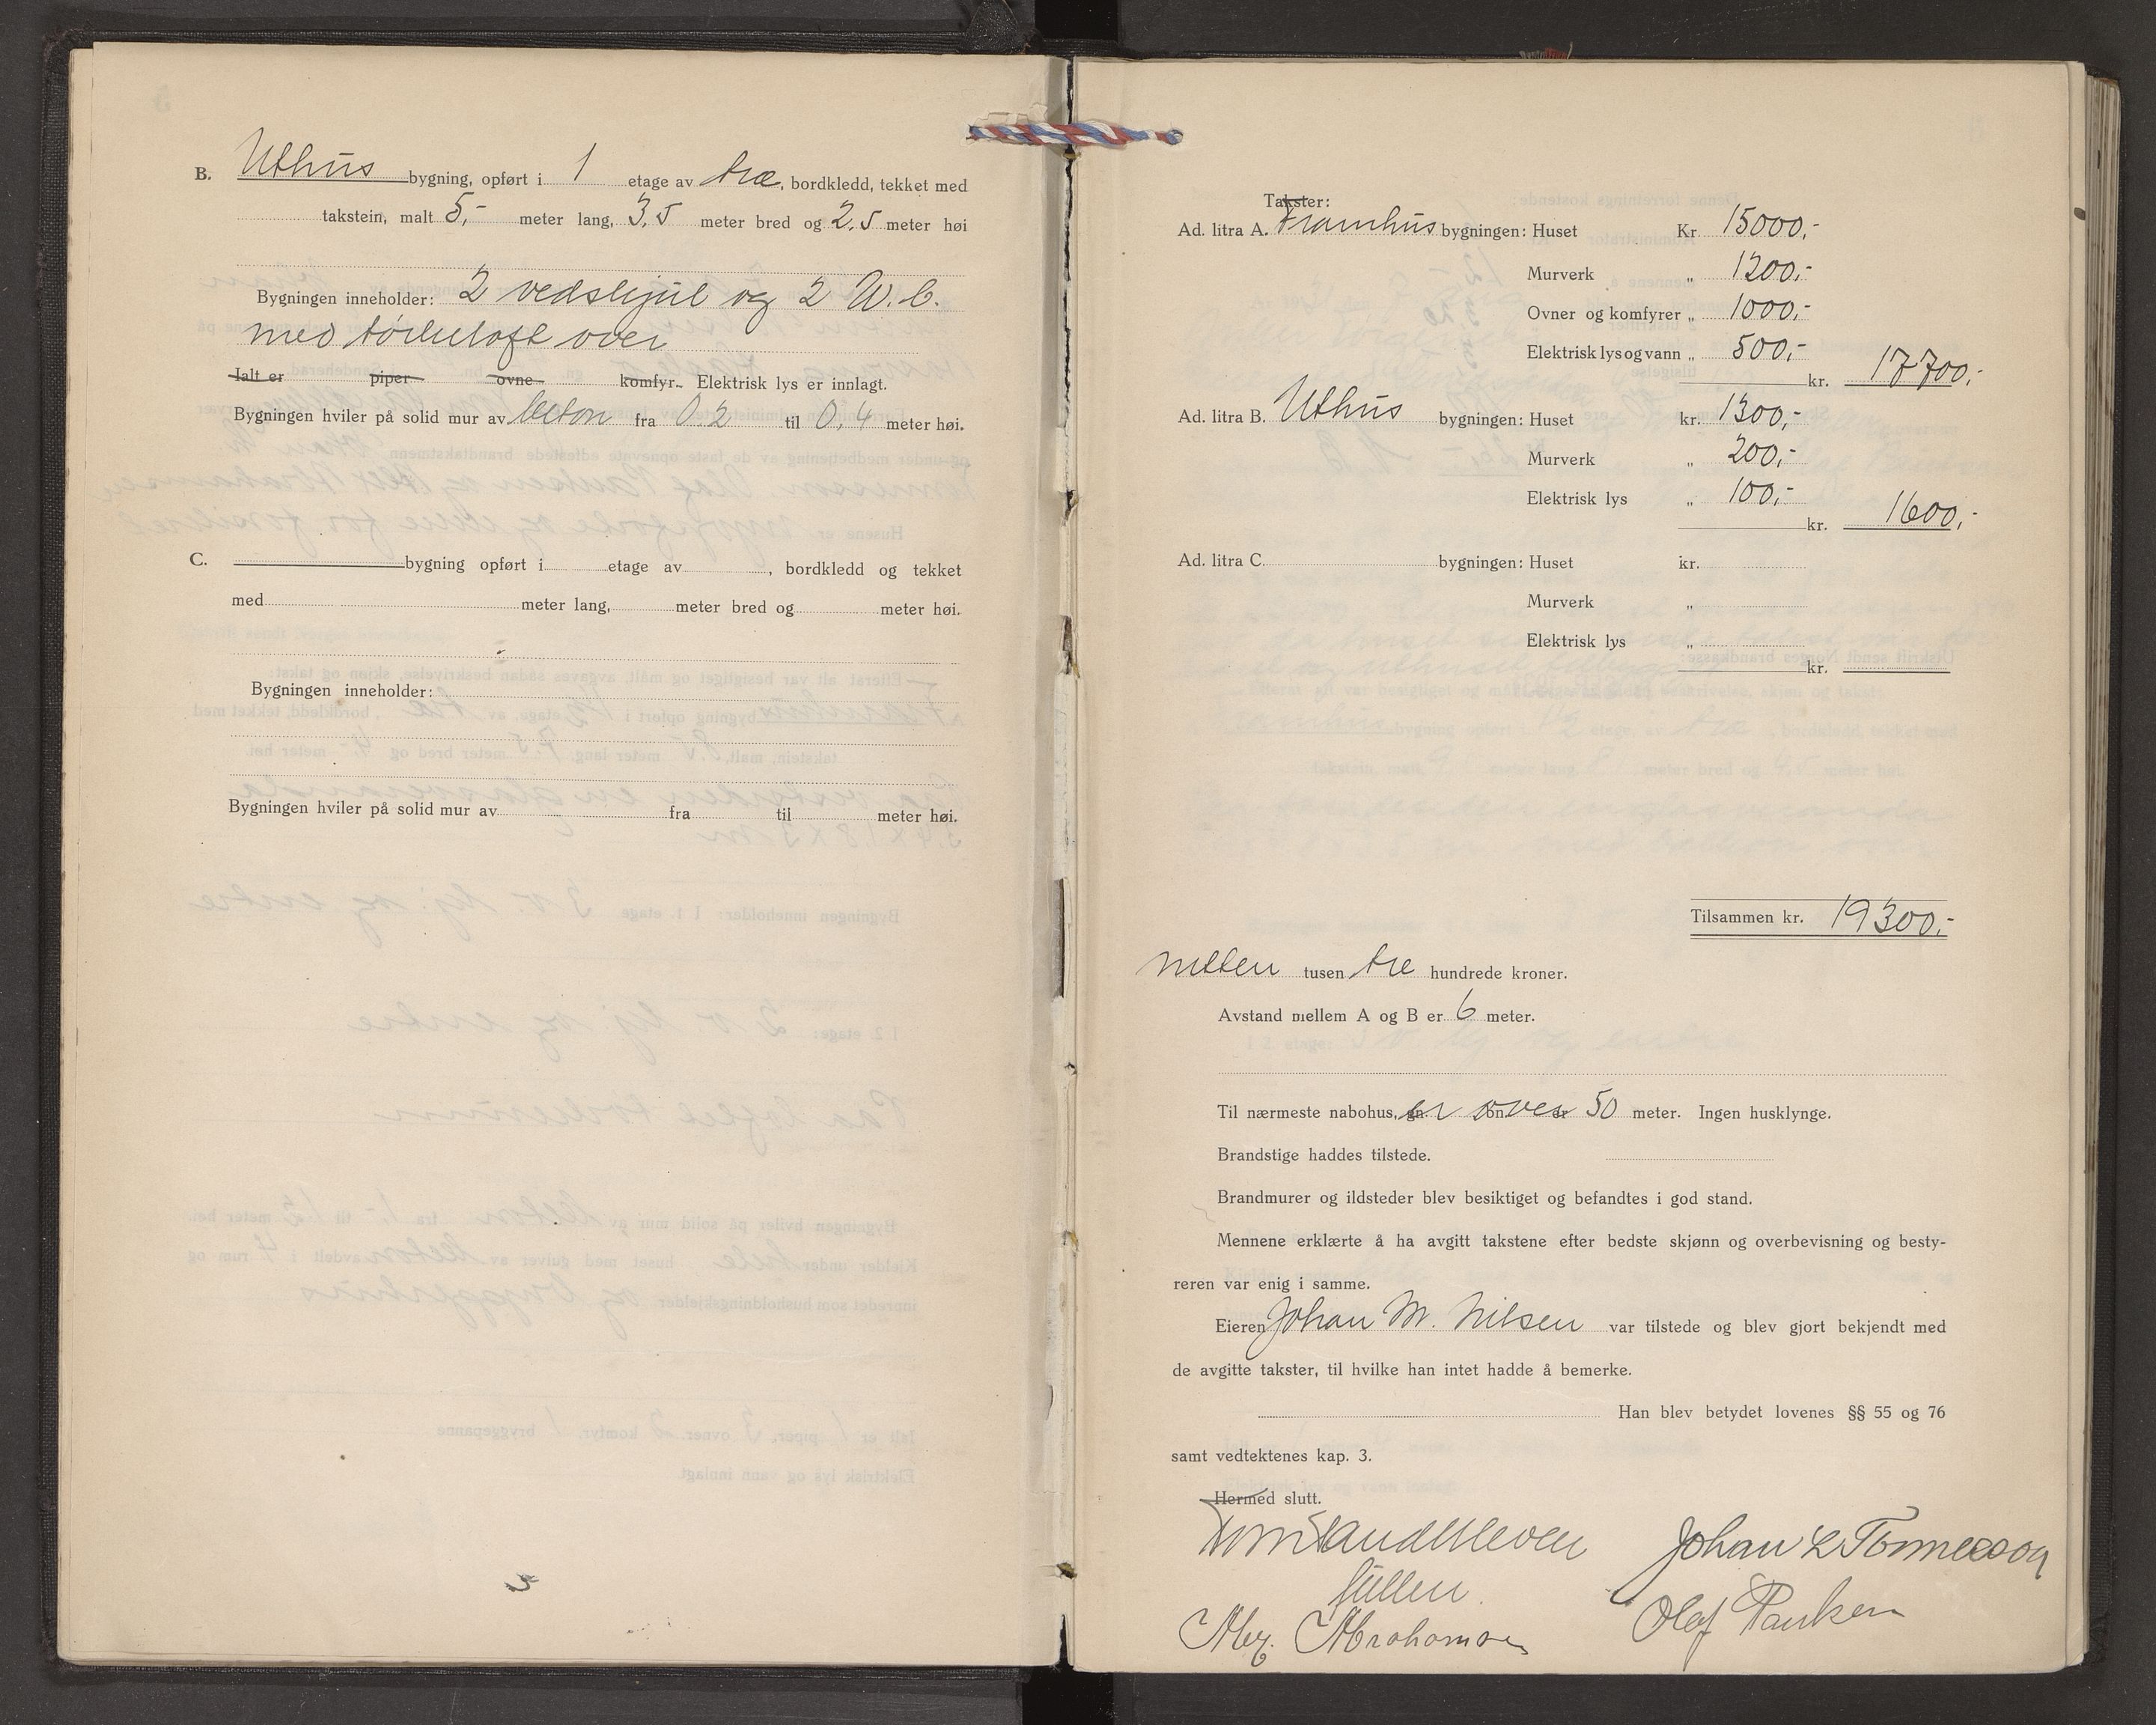 B. Uthus bygning, opført i 1 etage av træ, bordkledd, tekket med
takstein, malt 5,- meter lang, 3,5 meter bred og 2,5 meter høi
Bygningen inneholder: 2 vedskjul og 2 W.C.
med tørkeloft over
Ialt er piper ovne komfyr. Elektrisk lys er innlagt.
Bygningen hviler på solid mur av beton fra 0.2 til 0,4 meter høi.
C. bygning opført i etage av , bordkledd og tekket
med meter lang, meter bred og meter høi.
Bygningen inneholder:
Bygningen hviler på solid mur av fra til meter høi.
Takster:
Ad. litra A. Framhus bygningen: Huset Kr. 15000,-
Murverk „ 1200,-
Ovner og komfyrer „ 1000,-
Elektrisk lys og vann „ 500,-
kr. 17700,-
Ad. litra B. Uthus bygningen: Huset kr. 1300,-
Murverk „ 200,-
Elektrisk lys „ 100,-
kr. 1600,-
Ad. litra C. bygningen: Huset kr.
Murverk „
Elektrisk lys „
kr.
Tilsammen kr. 19300,-
nitten tusen tre hundrede kroner.
Avstand mellem A og B er 6 meter.
Til nærmeste nabohus, er over 50 meter. Ingen husklynge.
Brandstige haddes tilstede.
Brandmurer og ildsteder blev besiktiget og befandtes i god stand.
Mennene erklærte å ha avgitt takstene efter bedste skjønn og overbevisning og besty-
reren var enig i samme.
Eieren Johan M. Nilsen var tilstede og blev gjort bekjendt med
de avgitte takster, til hvilke han intet hadde å bemerke.
Han blev betydet lovenes §§ 55 og 76
samt vedtektenes kap. 3.
Hermed slutt.
Tom Sandkleven Johan L Tönnesson
Alex. Abrahamsen Olaf Paulsen